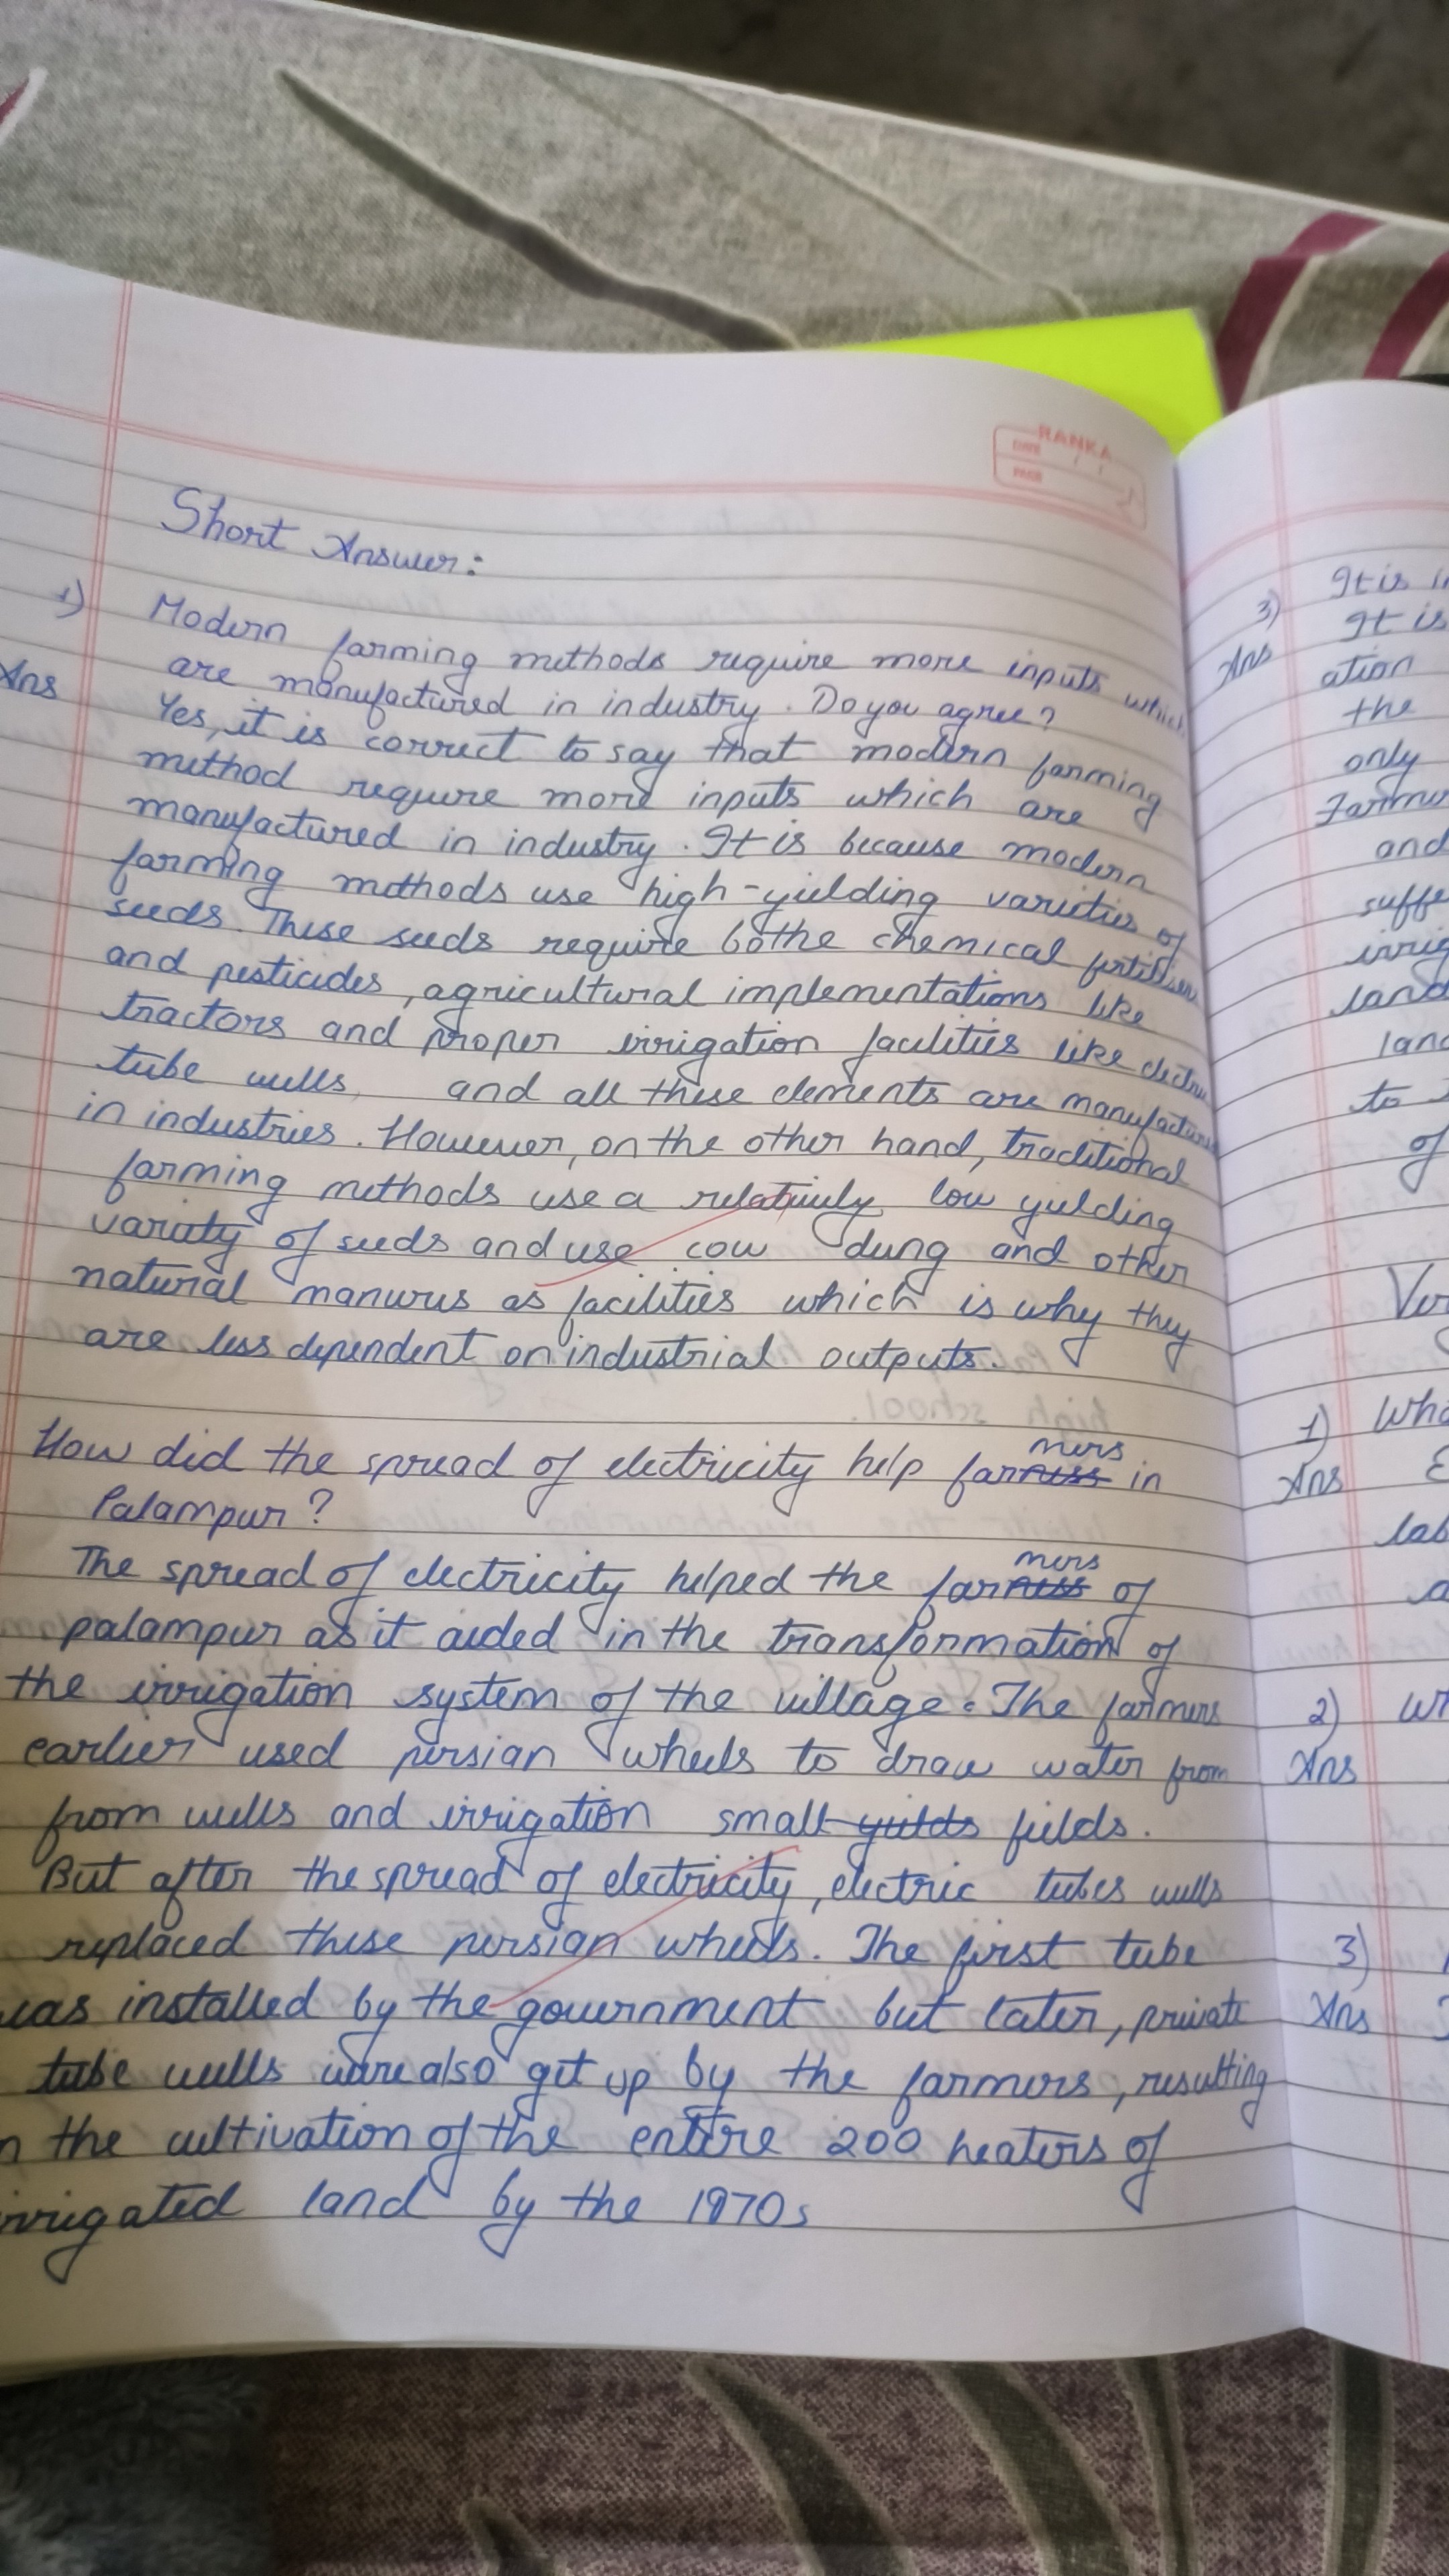 RANKA
DATE
PAGE
Short Answer:
1) Modern farming methods require more inputs which
are manufactured in industry. Do you agree?
Ans Yes, it is correct to say that modern farming
method require more inputs which are
manufactured in industry. It is because modern
farming methods use high-yielding varieties of
seeds. These seeds require bothe chemical fertiliser
and pesticides, agricultural implementations like
tractors and proper irrigation facilities like electric
tube wells, and all these elements are manufactured
in industries. However, on the other hand, traditional
farming methods use a relatively low yielding
variety of seeds and use cow dung and other
natural manurus as facilities which is why they
are less dependent on industrial outputs.
How did the spread of electricity help farmers in
Palampur?
The spread of electricity helped the farmers of
palampur as it aided in the transformation of
the irrigation system of the village. The farmers
earlier used persian wheels to draw water from
from wells and irrigation small yields fields.
But after the spread of electricity, electric tubes wells
replaced these persian wheels. The first tube
was installed by the government but later, private
tube wells ware also get up by the farmers, resulting
n the cultivation of the entire 200 heaters of
irrigated land by the 1970s
3) It is i
It is
Ans ation
the
only
Farme
and
suffe
irrig
land
land
to
of
Ver
1) Wha
Ans E
lab
a
2) Wh
Ans
3)
Ans